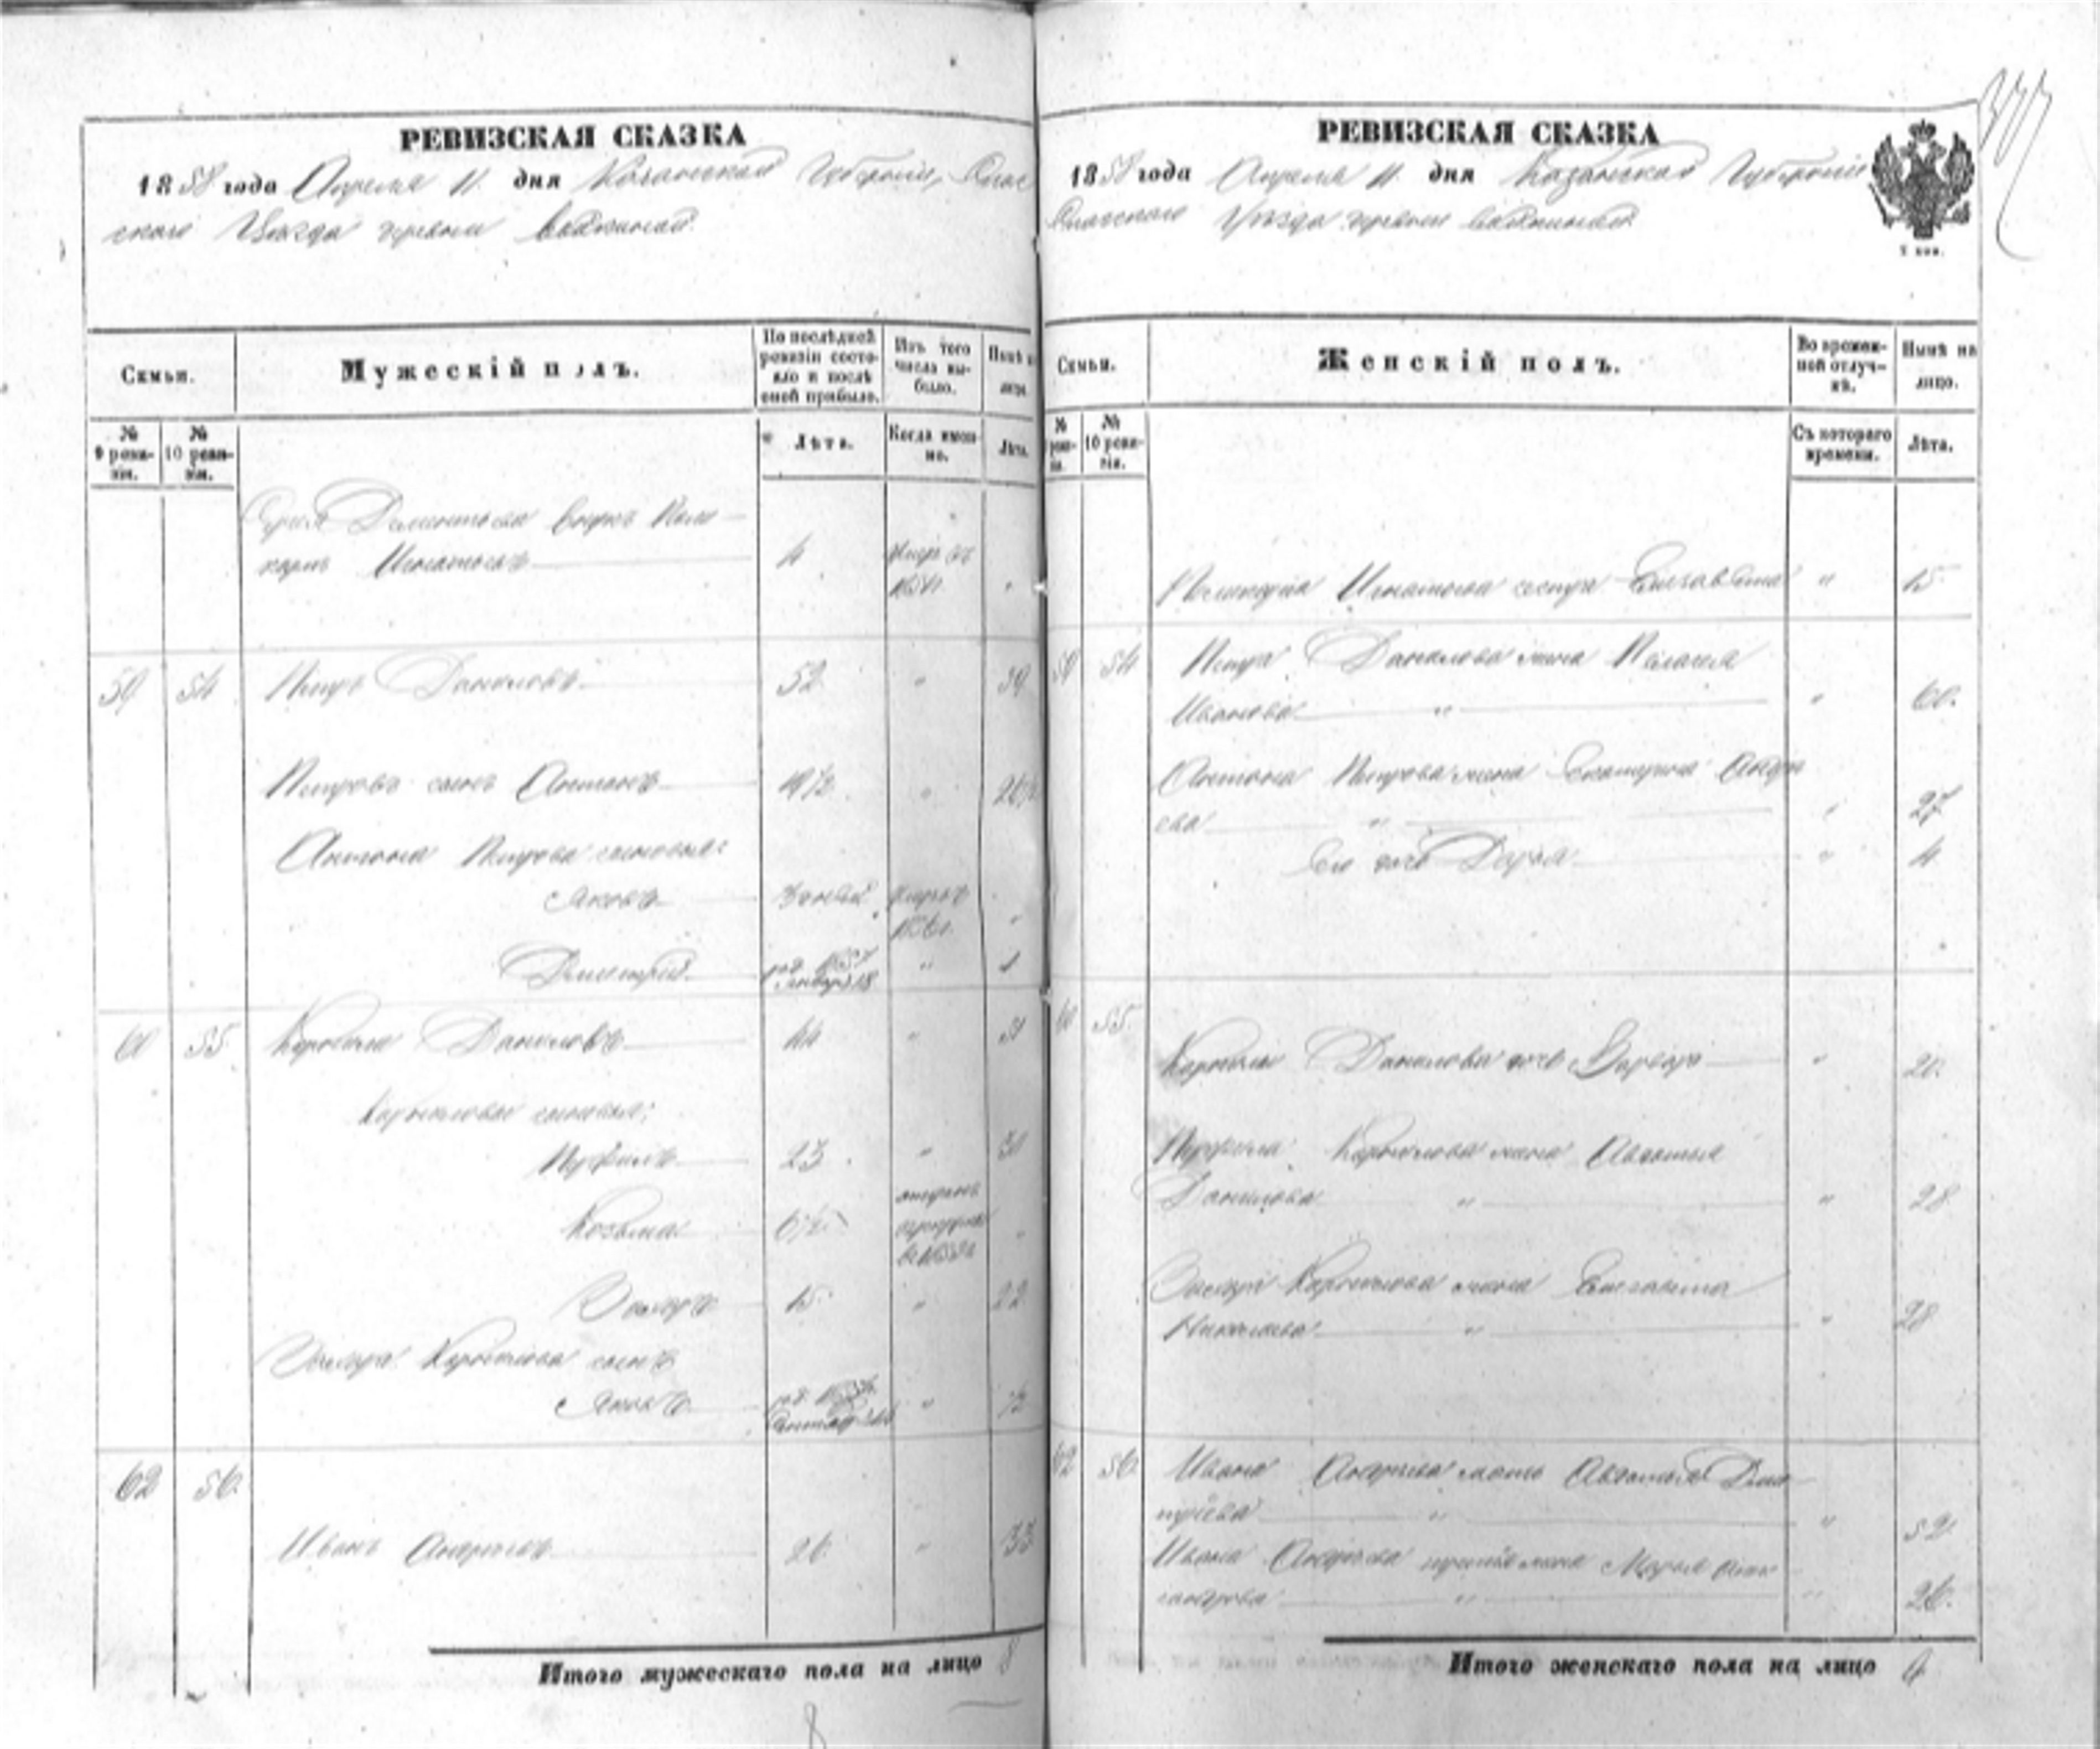 РЕВИЗСКАЯ СКАЗКА
1858 года Апреля 11 дня Казанской Губернии, Спас
скаго Уезда деревни
Семьи.
Мужескій полъ.
По послѣдней ревизіи состояло и послѣ оной прибыло.
Изъ того числа выбыло.
Нынѣ на лицо.
№ 9 ревизіи.
№ 10 ревизіи.
Лѣта.
Когда именно.
Лѣта.
Сергея Дементьева внукъ Поли-
карпъ Игнатьевъ 4
59 54 Петръ Даниловъ 52 " 59
Петровъ сынъ Антонъ 19½ "
Антона Петрова сыновья:
Яковъ
Дмитрій " 1
60 55 Корнила Даниловъ 44 " 51
Корниловы сыновья:
Перфилъ 23 " 31
Козьма
Захаръ 15 " 22
Захара Корнилова сынъ
Яковъ " ½
62 56
Иванъ Андреевъ 26 " 33
Итого мужескаго пола на лицо 8
8
РЕВИЗСКАЯ СКАЗКА
1858 года Апреля 11 дня Казанской Губерніи
Спасскаго Уезда деревни
Семьи.
Женскій полъ.
Во временной отлучкѣ.
Нынѣ на лицо.
№ 9 ревизіи.
№ 10 ревизіи.
Съ котораго времени.
Лѣта.
Поликарпа Игнатьева сестра Елизавета " 15
59 54 Петра Данилова жена Пелагея
Иванова " " 60.
Антона Петрова жена Екатерина Андре
ева " " 27
Его дочь Дарья " 4
60 55 Корнилы Данилова дочь Варвара " 20.
Перфила Корнилова жена Авдотья
Данилова " " 28
Захара Корнилова жена Елизавета
Николаева " " 28
62 56 Ивана Андреева мать Авдотья Дми
тріева " " 52
Ивана Андреева жена Марья Алек
сандрова " " 26.
Итого женскаго пола на лицо